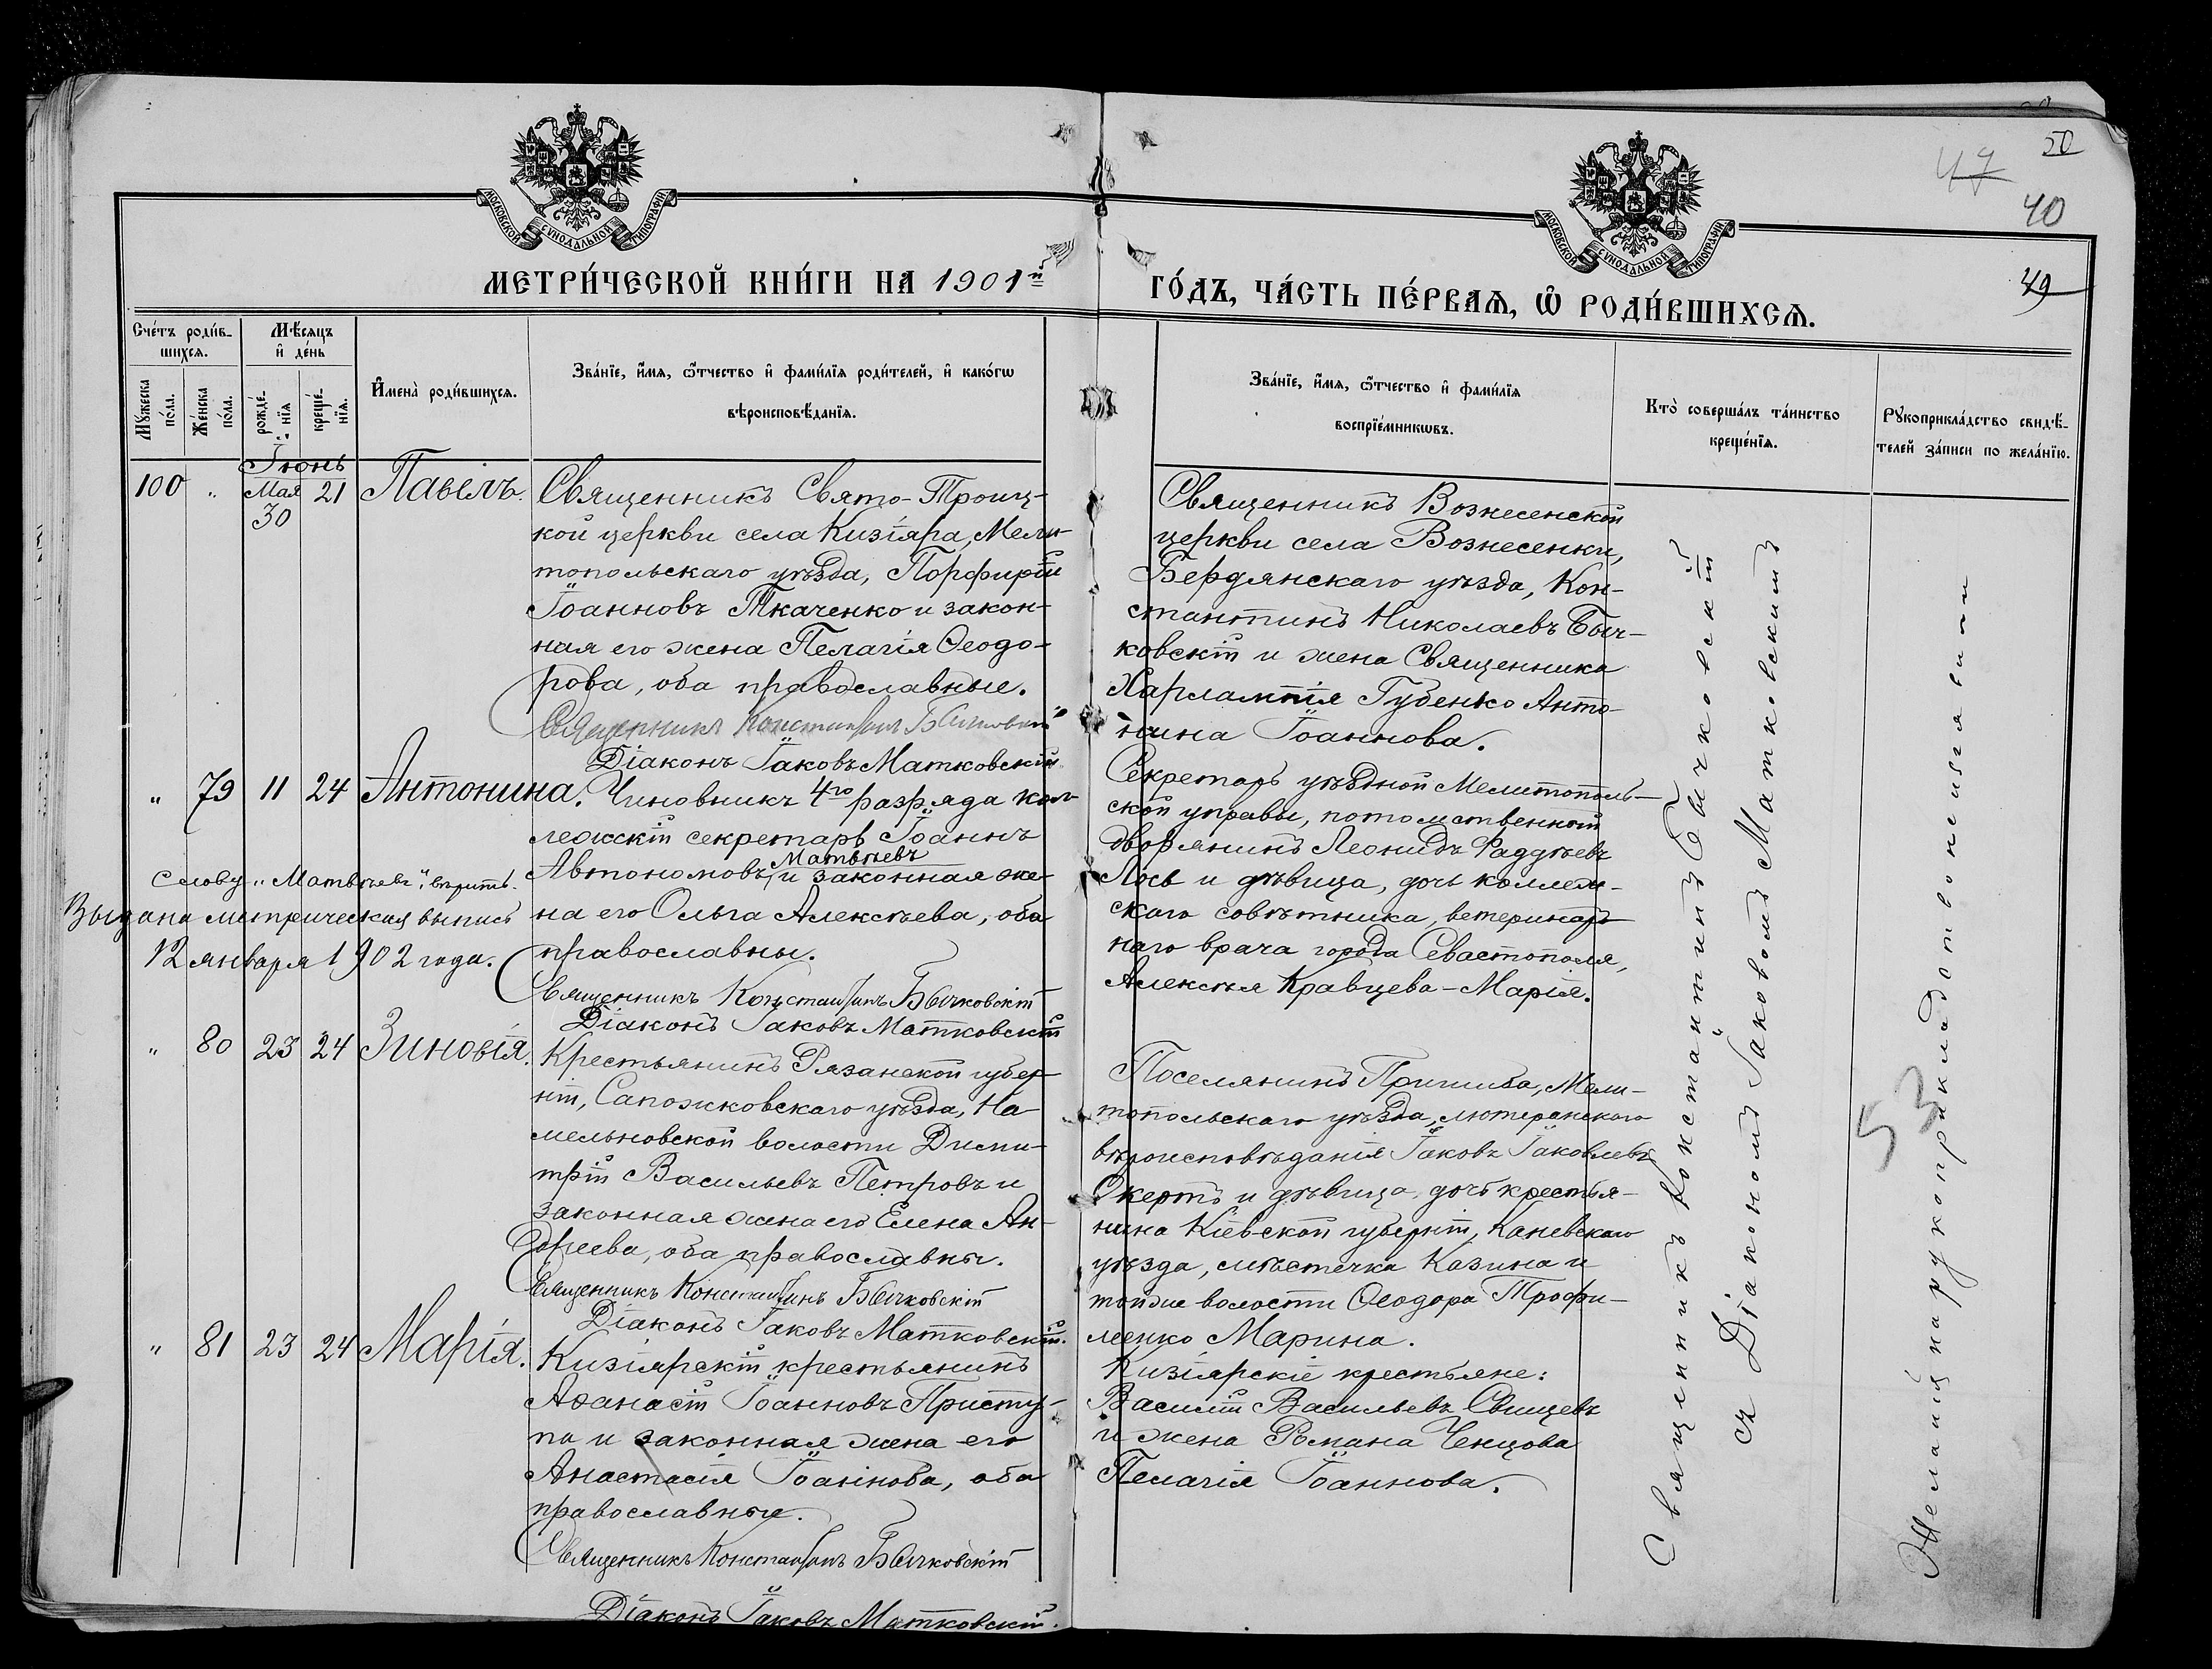 50
47
40
49
МОСКОВСКОЙ СѴНОДАЛЬНОЙ ТИПОГРАФІИ
МОСКОВСКОЙ СѴНОДАЛЬНОЙ ТИПОГРАФІИ
МЕТРИ́ЧЕСКОЙ КНИ́ГИ НА 1901й
ГО́ДЪ, ЧА́СТЬ ПЕ́РВАѦ, Ѡ҆ РОДИ́ВШИХСѦ.
Сче́тъ роди́в-
шихсѧ.
Мꙋ́жеска по́ла.
Же́нска по́ла.
Мѣ́сѧцъ
и҆ де́нь
рожде́-нїѧ
креще́-нїѧ.
И҆мена̀ роди́вшихсѧ.
Зва́нїе, и҆́мѧ, ѻ҆́тчество и҆ фами́лїѧ роди́телей, и҆ како́гѡ
вѣроисповѣ́данїѧ.
Зва́нїе, и҆́мѧ, ѻ҆́тчество и҆ фами́лїѧ
воспрїе́мникѡвъ.
Кто̀ соверша́лъ та́инство
креще́нїѧ.
Рꙋкоприкла́дство свидѣ́-
телей за́писи по жела́нїю.
Іюнь
100 " Мая 21 Павелъ.
30
Священникъ Свято-Троиц-
кой церкви села Кизіяра, Мели-
топольскаго уѣзда, Порфирій
Іоанновъ Ткаченко и закон-
ная его жена Пелагія Ѳеодо-
рова, оба православные.
Священникъ Константинъ Бычковскій
Діаконъ Іаковъ Матковскій
Священникъ Вознесенской
церкви села Вознесенки,
Бердянскаго уѣзда, Кон-
стантинъ Николаевъ Быч-
ковскій и жена Священника
Харлампія Губенко Анто-
нина Іоаннова.
" 79 11 24 Антонина.
Чиновникъ 4го разряда кол-
лежскій секретарь Іоаннъ
Матвѣевъ
Автономовъ, и законная же-
на его Ольга Алексѣева, оба
православны.
Священникъ Константинъ Бычковскій
Діаконъ Іаковъ Матковскій
Слову „Матвѣевъ", вѣрить.
Выдана метрическая выпись
12 января 1902 года.
Секретарь уѣздной Мелитополь-
ской управы, потомственный
дворянинъ Леонидъ Фаддѣевъ
Лось и дѣвица, дочь коллеж-
скаго совѣтника, ветеринар-
наго врача города Севастополя,
Алексѣя Кравцева - Марія.
" 80 23 24 Зиновія.
Крестьянинъ Рязанской губер-
ніи, Сапожковскаго уѣзда, На-
мельновской волости Дими-
трій Васильевъ Петровъ и
законная жена его Елена Ан-
дреева, оба православны.
Священникъ Константинъ Бычковскій
Діаконъ Іаковъ Матковскій.
Поселянинъ Пришиба, Мели-
топольскаго уѣзда, лютеранскаго
вѣроисповѣданія Іаковъ Іаковлевъ
и дѣвица, дочь крестья-
нина Кіевской губерніи, Каневскаго
уѣзда, мѣстечка Казина и
тойже волости Ѳеодора Трофи-
менко Марина.
" 81 23 24 Марія.
Кизіярскій крестьянинъ
Аѳанасій Іоанновъ Присту-
па и законная жена его
Анастасія Іоаннова, оба
православные.
Священникъ Константинъ Бычковскій
Діаконъ Іаковъ Матковскій.
Кизіярскіе крестьяне:
Василій Васильевъ Свищевъ
и жена Романа Ченцова
Пелагія Іоаннова.
Священникъ Константинъ Бычковскій
съ Діакономъ Іаковомъ Матковскимъ
53
Желаній на рукоприкладство не изъявили